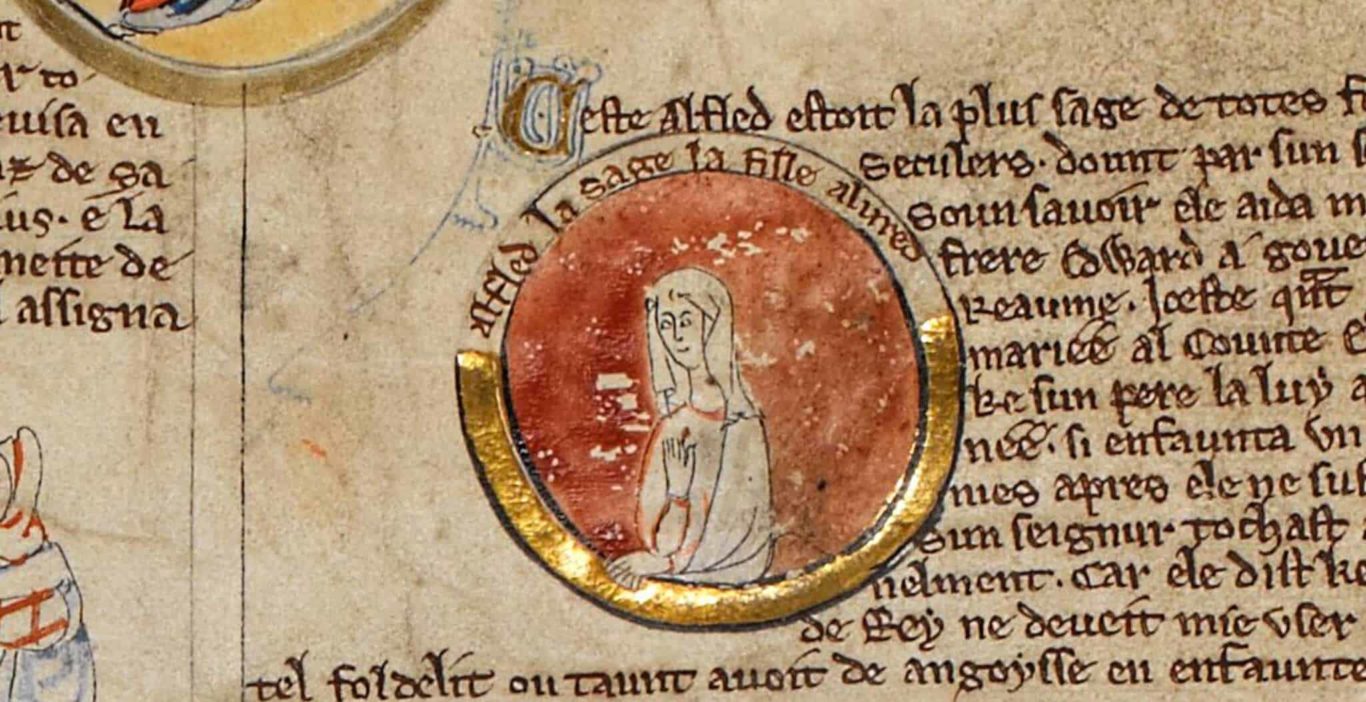 r to
euisa en
de sa
ius. e la
mette de
assigna
Ceste Alfled estoit la plus sage de totes f
Seculers. dount par sun s
Soun sauoir ele aida m
frere Edward a gouer
Reaume. Iceste
mariee al Counte E
ke sun pere la luy a
nee. si enfaunta vn
mes apres ele ne suf
Sun seignur tochast
nelment. Car ele dist ke
de Rey ne deueit mie vser
tel fol delit ou taunt auoit de angoysse en enfaunte
Alfled la sage la fille alured